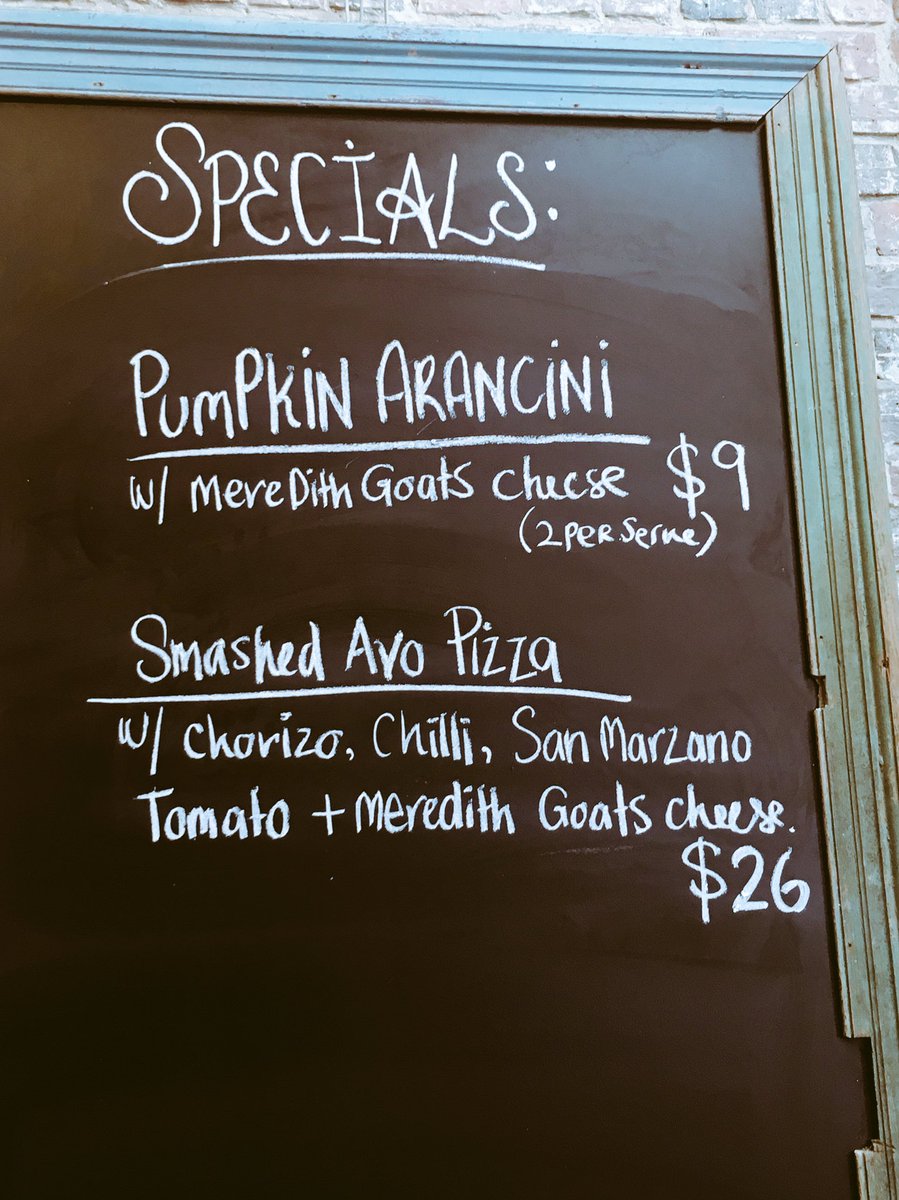 SPECIALS:
PUMPKIN ARANCINI
w/ Meredith Goats cheese $9
(2 per serve)
Smashed Avo Pizza
w/ chorizo, Chilli, San Marzano
Tomato + Meredith Goats cheese.
$26